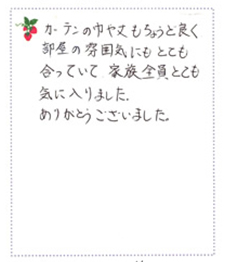 カーテンの巾や丈もちょうど良く
部屋の雰囲気にもとても
合っていて 家族全員とても
気に入りました.
ありがとうございました。